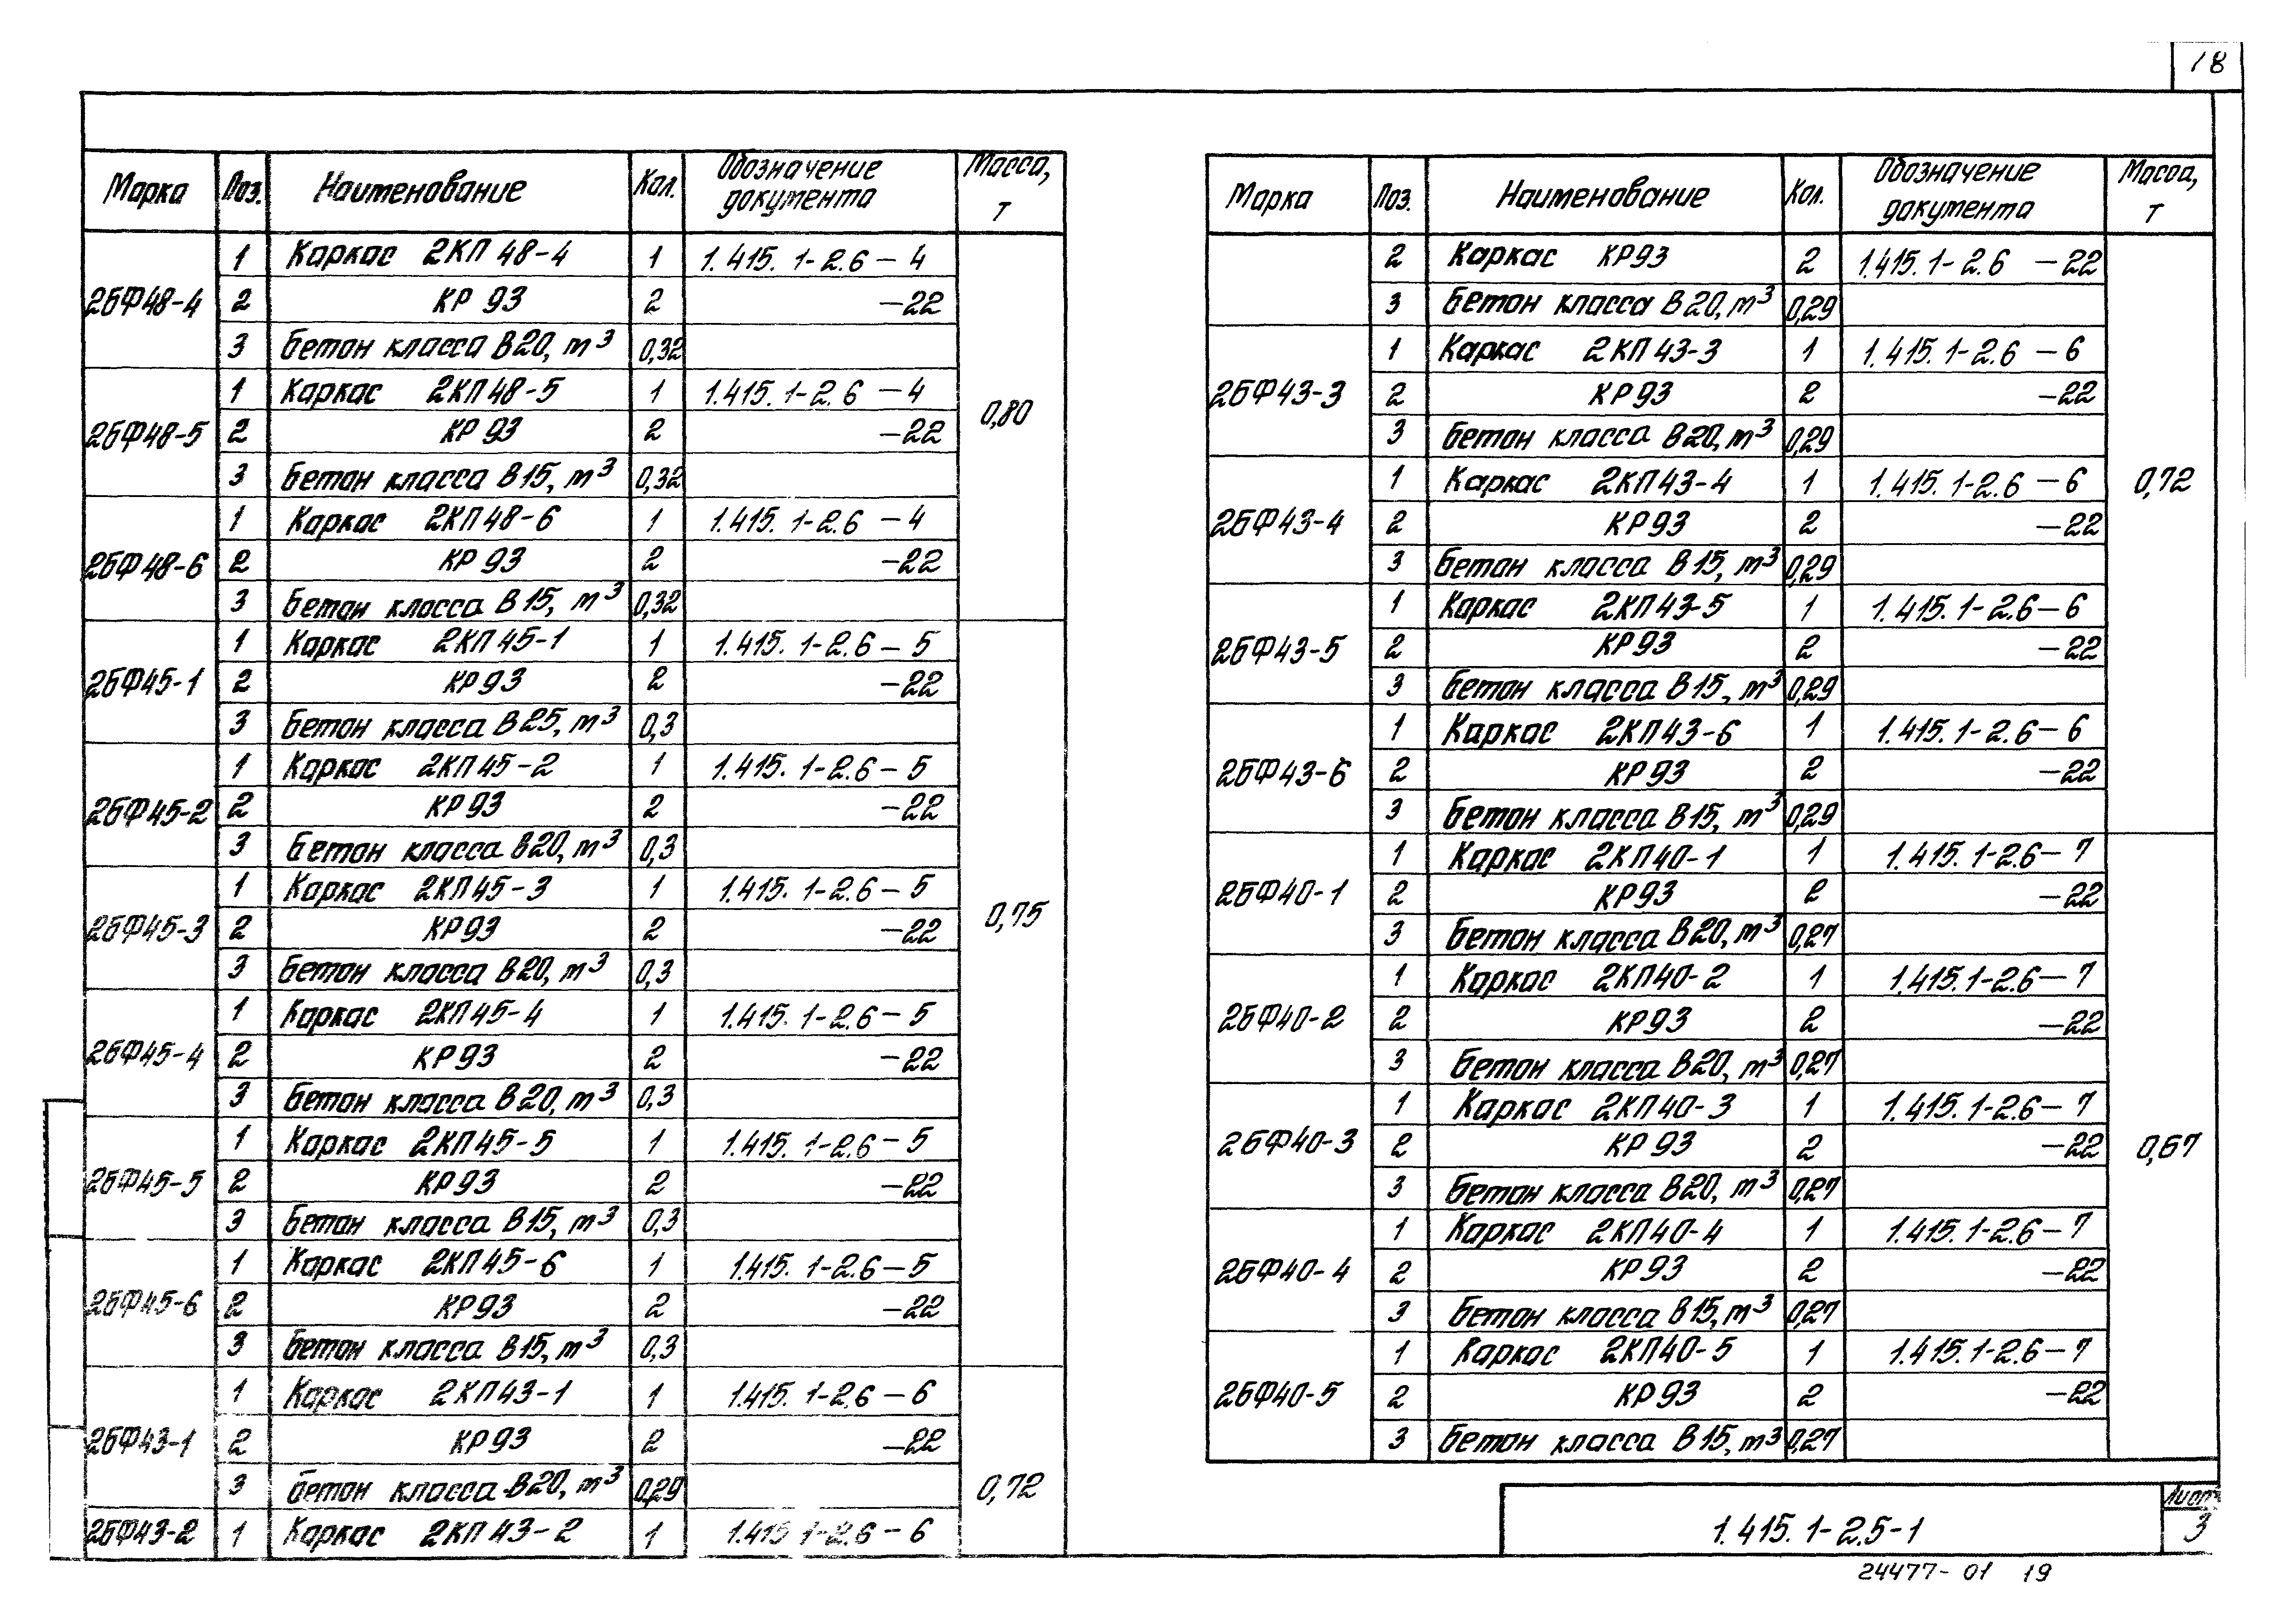 18
Марка Поз. Наименование Кол. Обозначение документа Масса, т
1 Каркас 2КП48-4 1 1.415.1-2.6-4
2БФ48-4 2 КР93 2 -22
3 Бетон класса В20, m³ 0,32
1 Каркас 2КП48-5 1 1.415.1-2.6-4
0,80
2БФ48-5 2 КР93 2 -22
3 Бетон класса В15, m³ 0,32
1 Каркас 2КП48-6 1 1.415.1-2.6-4
2БФ48-6 2 КР93 2 -22
3 Бетон класса В15, m³ 0,32
1 Каркас 2КП45-1 1 1.415.1-2.6-5
2БФ45-1 2 КР93 2 -22
3 Бетон класса В25, m³ 0,3
1 Каркас 2КП45-2 1 1.415.1-2.6-5
2БФ45-2 2 КР93 2 -22
3 Бетон класса В20, m³ 0,3
1 Каркас 2КП45-3 1 1.415.1-2.6-5
2БФ45-3 2 КР93 2 -22 0,75
3 Бетон класса В20, m³ 0,3
1 Каркас 2КП45-4 1 1.415.1-2.6-5
2БФ45-4 2 КР93 2 -22
3 Бетон класса В20, m³ 0,3
1 Каркас 2КП45-5 1 1.415.1-2.6-5
2БФ45-5 2 КР93 2 -22
3 Бетон класса В15, m³ 0,3
1 Каркас 2КП45-6 1 1.415.1-2.6-5
2БФ45-6 2 КР93 2 -22
3 Бетон класса В15, m³ 0,3
1 Каркас 2КП43-1 1 1.415.1-2.6-6
2БФ43-1 2 КР93 2 -22
3 Бетон класса В20, m³ 0,29 0,72
2БФ43-2 1 Каркас 2КП43-2 1 1.415.1-2.6-6
Марка Поз. Наименование Кол. Обозначение документа Масса, т
2 Каркас КР93 2 1.415.1-2.6 -22
3 Бетон класса В20, m³ 0,29
1 Каркас 2КП43-3 1 1.415.1-2.6-6
2БФ43-3 2 КР93 2 -22
3 Бетон класса В20, m³ 0,29
1 Каркас 2КП43-4 1 1.415.1-2.6-6 0,72
2БФ43-4 2 КР93 2 -22
3 Бетон класса В15, m³ 0,29
1 Каркас 2КП43-5 1 1.415.1-2.6-6
2БФ43-5 2 КР93 2 -22
3 Бетон класса В15, m³ 0,29
1 Каркас 2КП43-6 1 1.415.1-2.6-6
2БФ43-6 2 КР93 2 -22
3 Бетон класса В15, m³ 0,29
1 Каркас 2КП40-1 1 1.415.1-2.6-7
2БФ40-1 2 КР93 2 -22
3 Бетон класса В20, m³ 0,27
1 Каркас 2КП40-2 1 1.415.1-2.6-7
2БФ40-2 2 КР93 2 -22
3 Бетон класса В20, m³ 0,27
1 Каркас 2КП40-3 1 1.415.1-2.6-7
2БФ40-3 2 КР93 2 -22 0,67
3 Бетон класса В20, m³ 0,27
1 Каркас 2КП40-4 1 1.415.1-2.6-7
2БФ40-4 2 КР93 2 -22
3 Бетон класса В15, m³ 0,27
1 Каркас 2КП40-5 1 1.415.1-2.6-7
2БФ40-5 2 КР93 2 -22
3 Бетон класса В15, m³ 0,27
Лист
1.415.1-2.5-1 3
24477-01 19